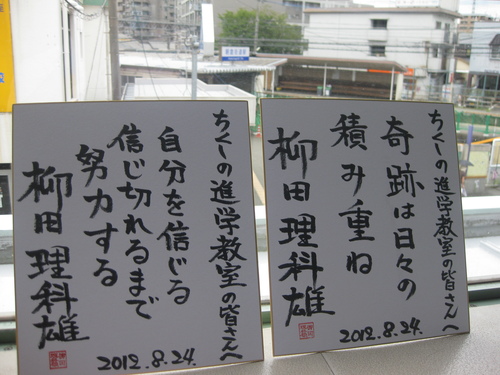 ちくしの進学教室の皆さんへ
自分を信じる
信じ切れるまで
努力する
柳田理科雄
2012.8.24.
ちくしの進学教室の皆さんへ
奇跡は日々の
積み重ね
柳田理科雄
2012.8.24.